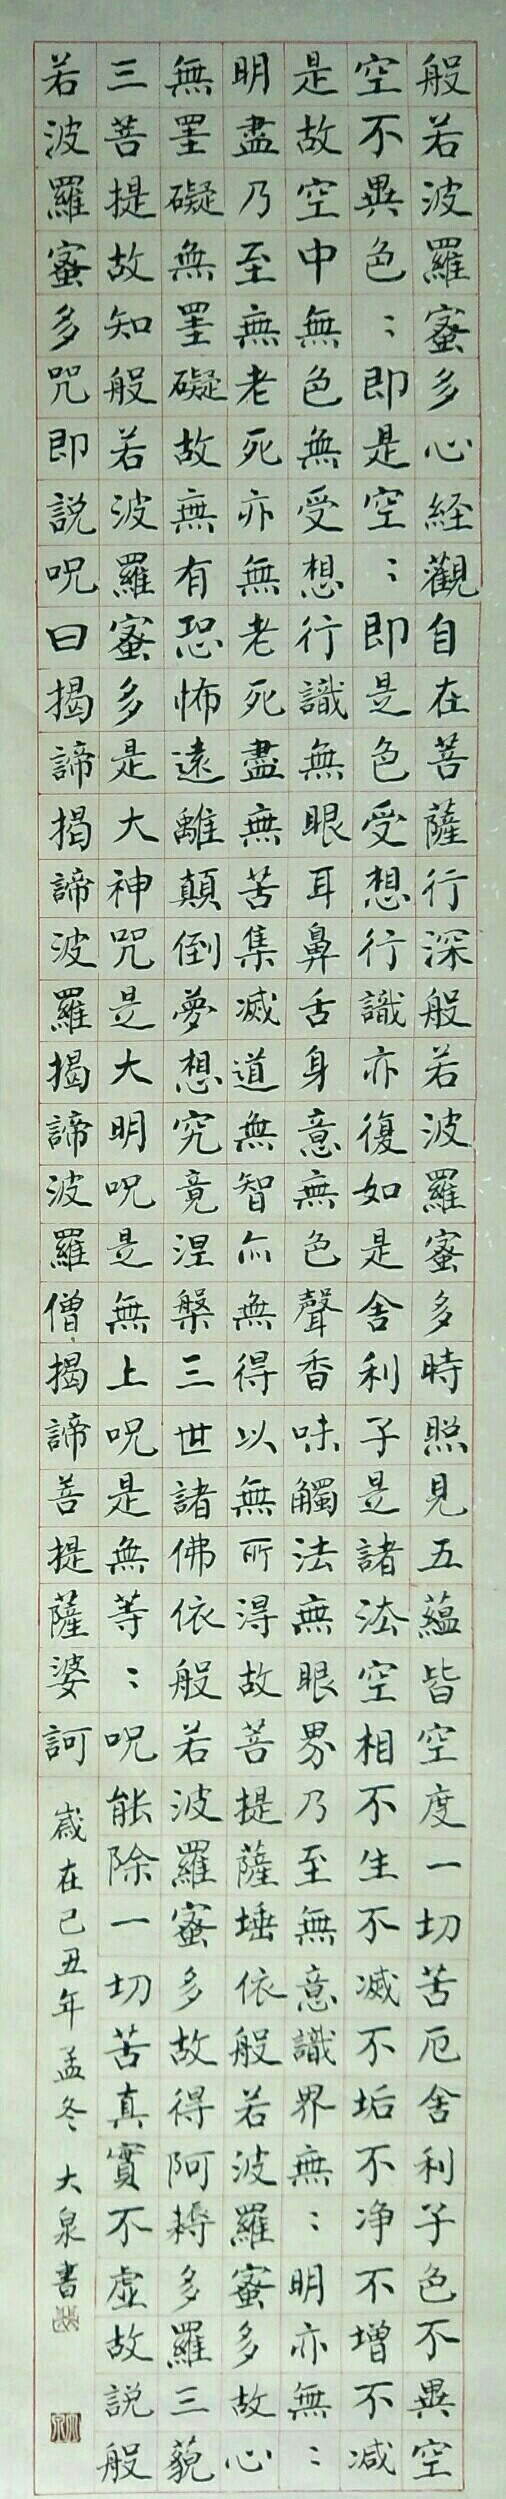 般若波羅蜜多心経觀自在菩薩行深般若波羅蜜多時照見五蘊皆空度一切苦厄舍利子色不異空
空不異色〻即是空〻即是色受想行識亦復如是舍利子是諸法空相不生不滅不垢不净不增不減
是故空中無色無受想行識無眼耳鼻舌身意無色聲香味觸法無眼界乃至無意識界無〻明亦無〻
明盡乃至無老死亦無老死盡無苦集滅道無智亦無得以無所得故菩提薩埵依般若波羅蜜多故心
無罣礙無罣礙故無有恐怖遠離顛倒夢想究竟涅槃三世諸佛依般若波羅蜜多故得阿耨多羅三藐
三菩提故知般若波羅蜜多是大神咒是大明呪是無上呪是無等〻呪能除一切苦真實不虛故説般
若波羅蜜多咒即説呪曰揭諦揭諦波羅揭諦波羅僧揭諦菩提薩婆訶
歲在己丑年孟冬 大泉書